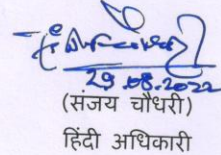 29.08.2022
(संजय चौधरी)
हिंदी अधिकारी